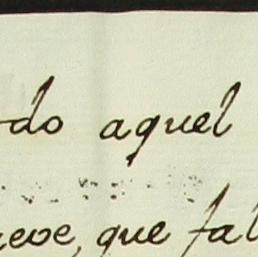 do aquel
eve, que fal